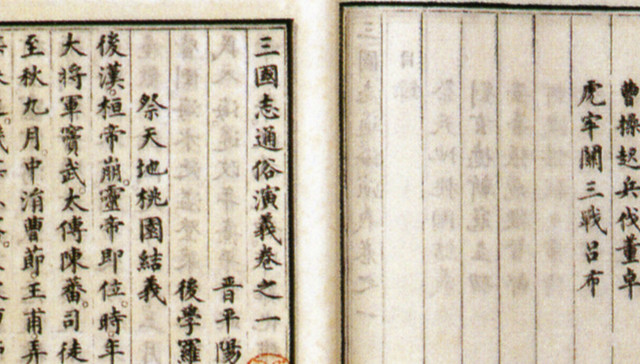 曹操起兵伐董卓
虎牢關三戰呂布
三國志通俗演義卷之一
晋平陽
後學羅
祭天地桃園結義
後漢。桓帝崩。靈帝即位。時年
大將軍竇武。太傅陳蕃。司徒
至秋九月。中涓曹節王甫弄